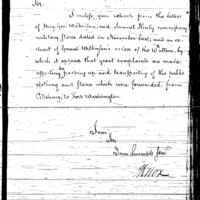 Sir.
I enclose you extracts from the letters
of Brig. Genl Wilkinson, and Samuel Henly concerning
military stores dated in November last, and an ex-
tract of General Wilkinson's orders of the 10th
by which it appears that great complaints are made
packing up and transporting of the public
clothing and stores which were forwarded from
to Fort Washington
I am
Sir
Your humble Servt
HKnox